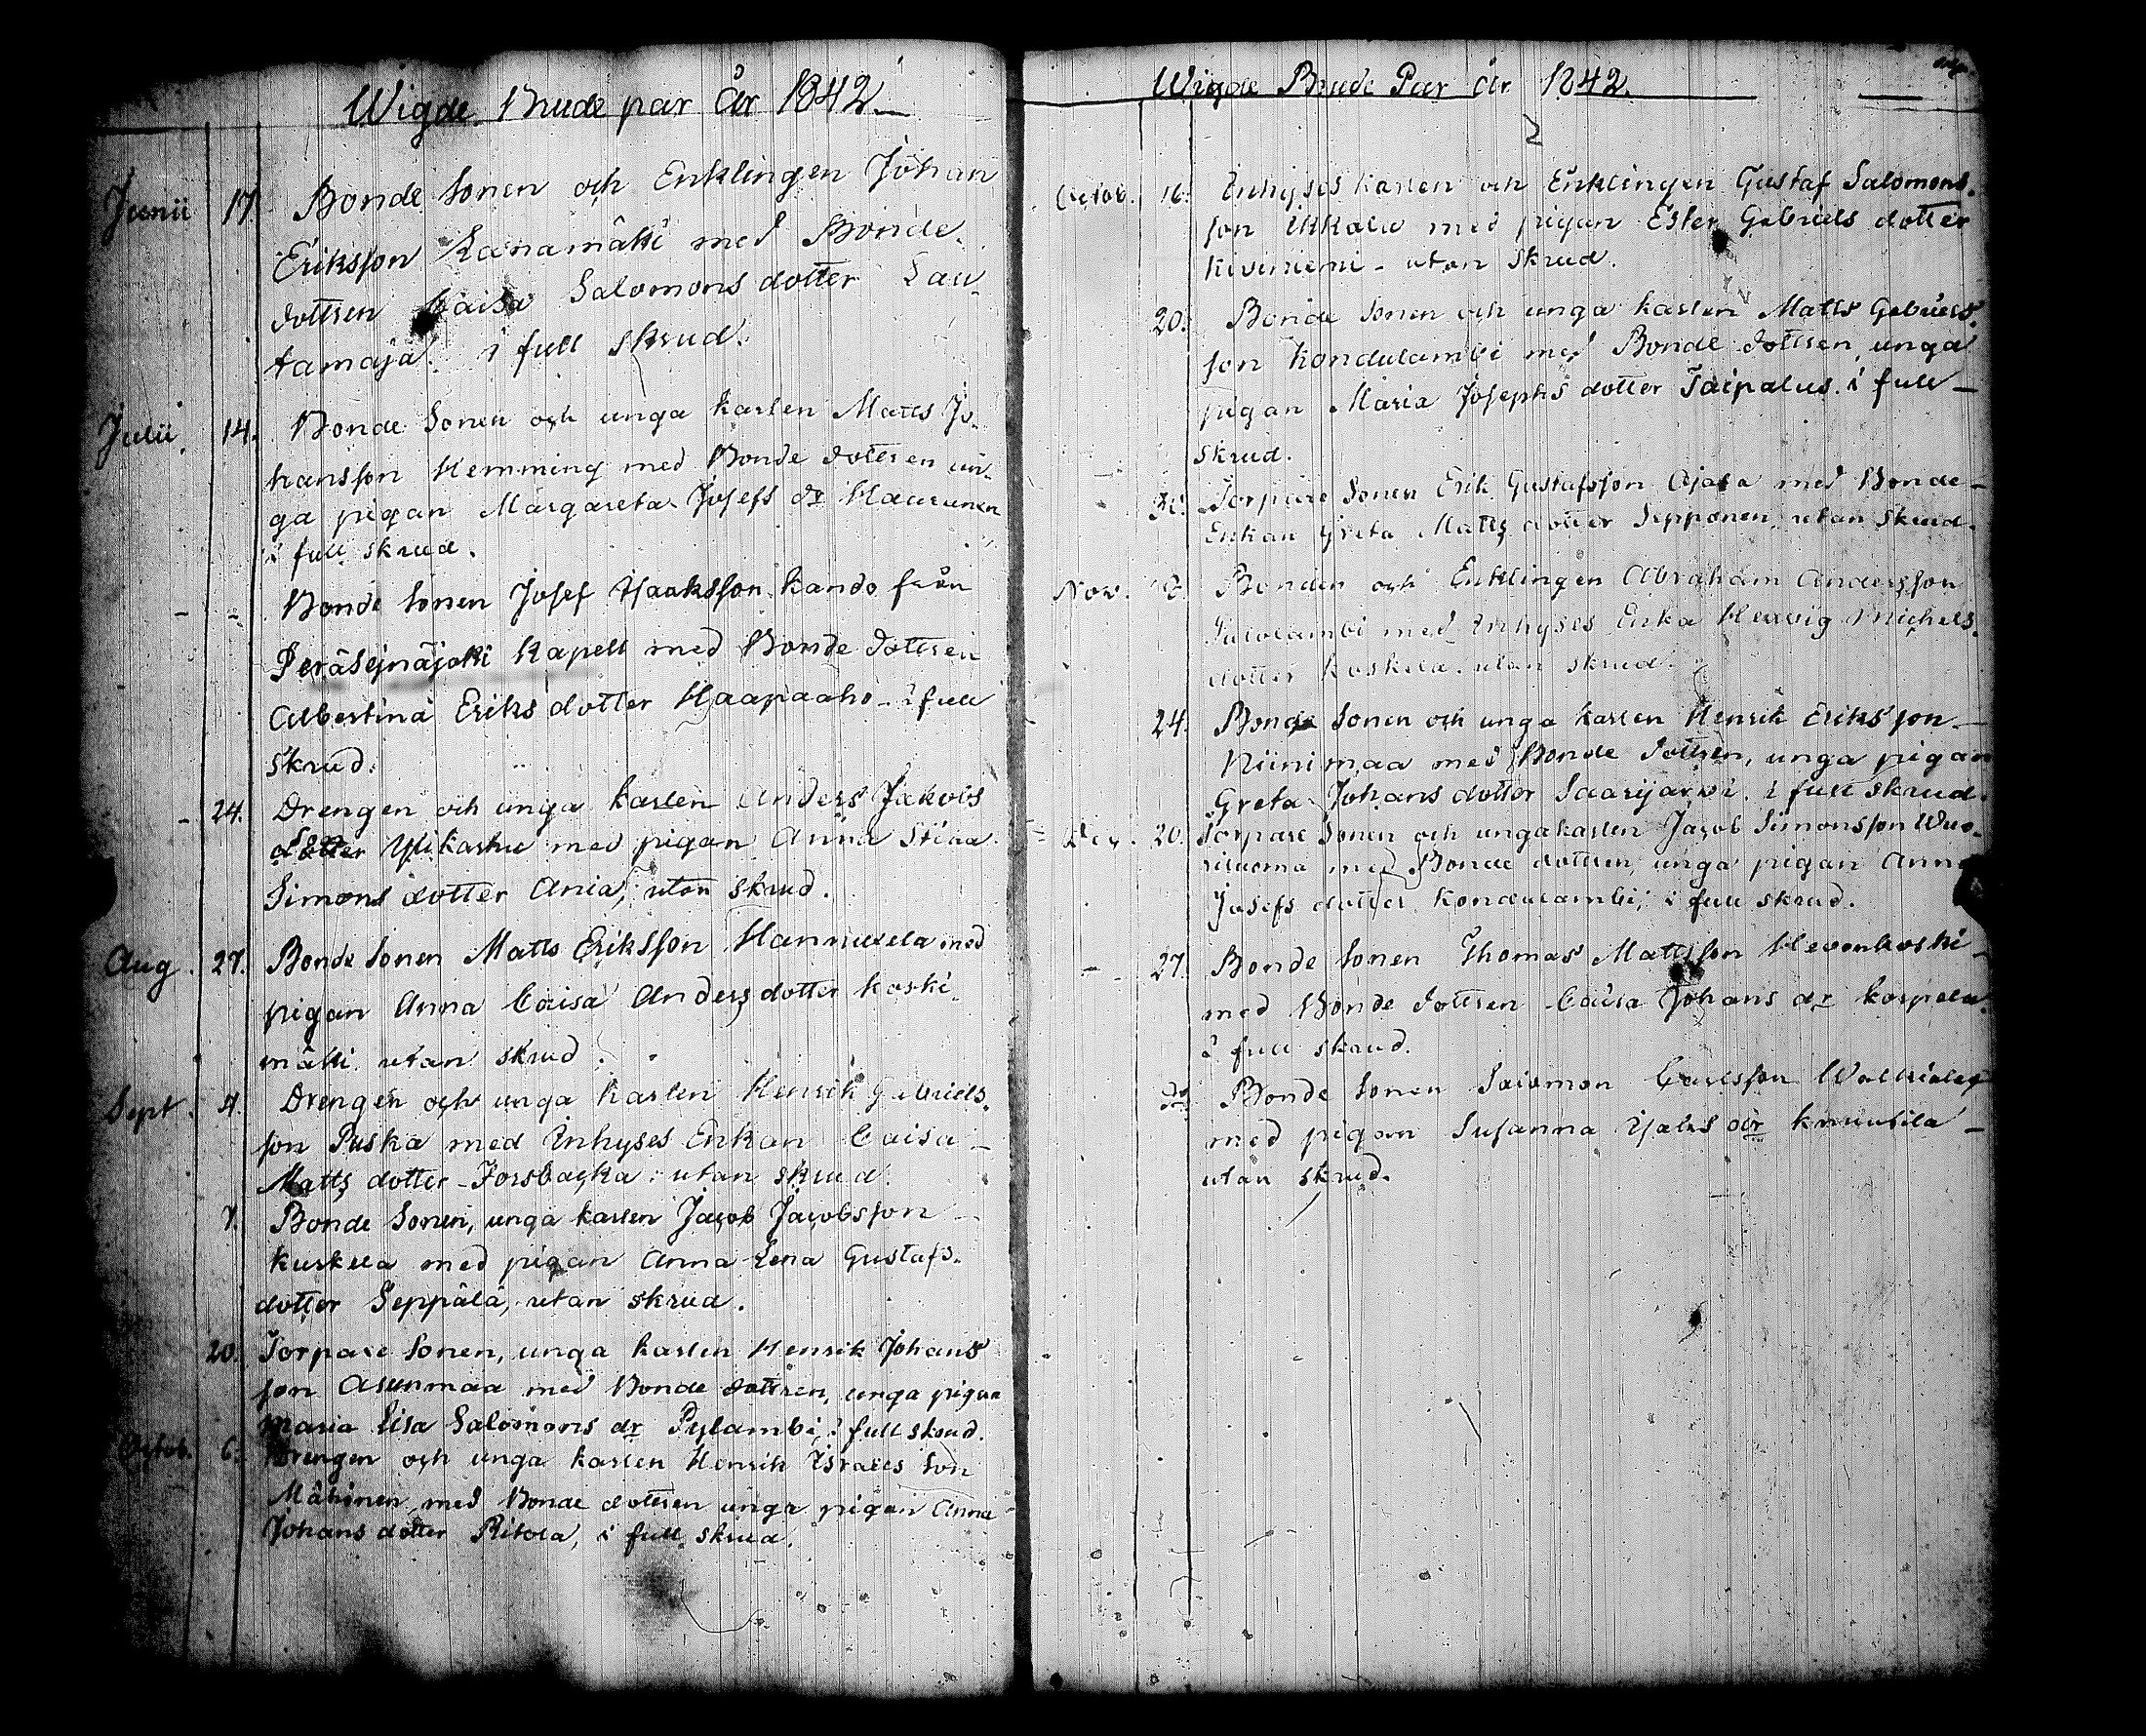 Wigde Brude par år 1842
Junii 17 Bonde Sonen och Enklingen Johan
Eriksson Kanamäki med Bonde
dottren Caisa Salomons dotter Lau
tamaja. i full skrud.
Julii 14. Bonde Sonen och unga karlen Matts Jo
hansson Hemming med Bonde dottren un
ga pigan Margareta Josefs dr Haurunen
i full skrud.
- - Bonde Sonen Josef Isaaksson Kando från
Peräsejnäjoki Kapell med Bonde dottren
Albertina Eriks dotter Haapaaho - i full
skrud.
- 24. Drengen och unga karlen Anders Jakobs
son Ylikarhu med pigan Anna Stina
Simons dotter Ania, utan skrud.
Aug. 27. Bonde Sonen Matts Eriksson Hannuxela med
pigan Anna Caisa Anders dotter Koski
mäki utan skrud.
Sept. 4. Drengen och unga karlen Henrik Gabriels
son Puska med Inhyses Enkan Caisa
Matts dotter Forsbacka. utan skrud.
7. Bonde Sonen, unga karlen Jacob Jacobsson
Kuskela med pigan Anna Lena Gustafs
dotter Seppälä, utan skrud.
20. Torpare Sonen, unga karlen Henrik Johans
son Asunmaa med Bonde dottren, unga pigan
Maria Lisa Salomons dr Pylambi, i full skrud.
Octob. 6. Drengen och unga karlen Henrik Israels Son
Mäkinen med Bonde dottren unga pigan Anna
Johans dotter Ritola, i full skrud.
Wigde Brude Par år 1842.
Octob. 16. Enhyses karlen och Enklingen Gustaf Salomons
son Ikkala med pigan Ester Gabriels dotter
Kiviniemi - utan skrud.
20. Bonde Sonen och unga karlen Matts Gabriels
son Kondulambi med Bonde dottren, unga
pigan Maria Josephs dotter Taipalus. i full
skrud.
Torpare Sonen Erik Gustafsson Ojala med Bonde
Enkan Greta Matts dotter Sepponen, utan skrud.
Nov. Bonden och Enklingen Abraham Andersson
Jalolambi med Inhyses Enka Hedvig Michels
dotter Koskela. utan skrud.
24. Bonde Sonen och unga karlen Henrik Eriksson
Niinimaa med Bonde dottren, unga pigan
Greta Johans dotter Saarijärvi. i full skrud.
Dec. 20. Torpare Sonen och unga karlen Jacob Simonsson Wuo
risuoma med Bonde dottren, unga pigan Anna
Josefs dotter Kondulambi, i full skrud.
- 27. Bonde Sonen Thomas Mattsson Hevonkoski
med Bonde dottren Caisa Johans dr Korpela
i full skrud.
Bonde Sonen Salomon Carlsson
med pigan Susanna dr Knuutila
utan skrud.